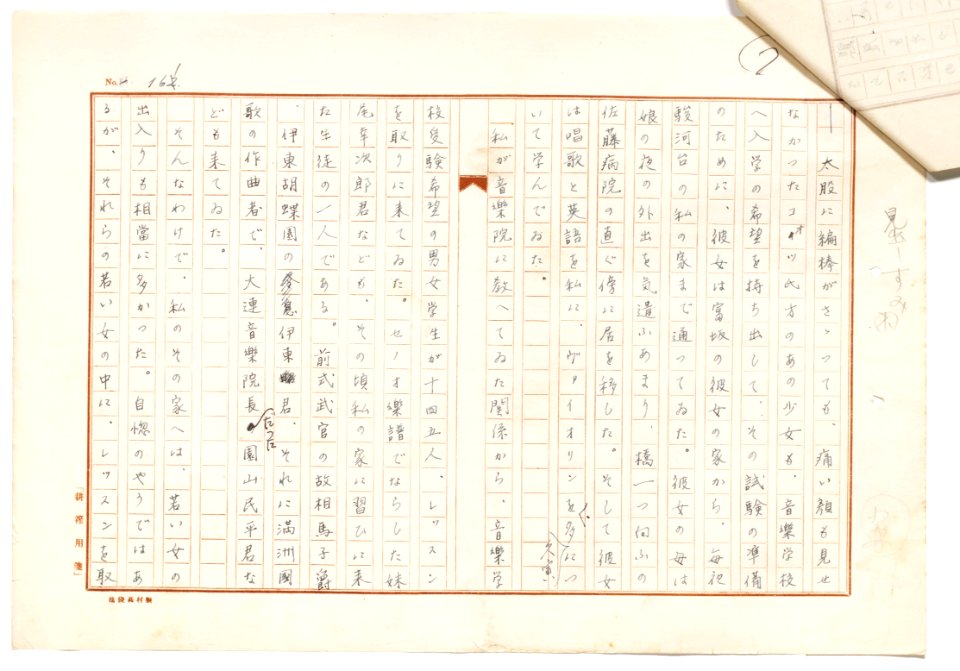 No. 16
7
太股に編棒がさゝつても、痛い顔も見せ
なかつたコオツ氏方のあの少女も、音樂学校
へ入学の希望を持ち出して、その試験の準備
のために、彼女は富坂の彼女の家から、毎夜
駿河台の私の家まで通つてゐた。彼女の母は
娘の夜の外出を気遣ふあまり、橋一つ向ふの
佐藤病院の直ぐ傍に居を移した。そして彼女
は唱歌と英語を私に、ヴァイオリンを多につ
いて学んでゐた。
私が音樂院に教へてゐた関係から、音樂学
校受験希望の男女学生が十四五人、レッスン
を取りに来てゐた。セノオ樂譜でならした妹
尾幸次郎君なども、その頃私の家に習ひに来
た生徒の一人である。前式武官の故相馬子爵
、伊東胡蝶園の伊東君、それに満洲國
歌の作曲者で、大連音樂院長だつた園山民平君な
ども来てゐた。
そんなわけで、私のその家へは、若い女の
出入りも相當に多かつた。自惚のやうではあ
るが、それらの若い女の中に、レッスンを取